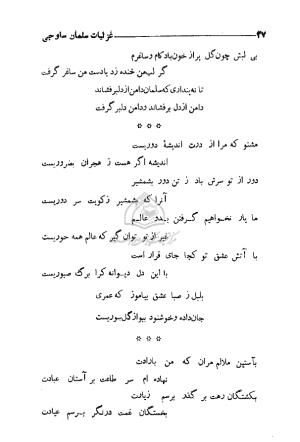 ۴۷ غزلیات سلمان ساوجی
بی لبش چون گل پر از خون باد کام و ساغرم
گر لب من خنده زد یا دست من ساغر گرفت
تا نه پنداری که سلمان دامن از دلبر فشاند
دامن از دل بر فشاند و دامن دلبر گرفت
* * *
مشنو که مرا از درت اندیشهٔ دوریست
اندیشه اگر هست ز هجران بضروریست
دور از تو سرش باد ز تن دور بشمشیر
آنرا که بشمشیر ز کویت سر دوریست
ما یاد نخواهیم گرفتن بدو عالم
غیر از تو توان گیر که عالم همه حوریست
با آتش عشق تو کجا جای قرار است
با این دل دیوانه کرا برگ صبوریست
بلبل ز صبا عشق بیاموز که عمری
جان داده و خوشنود ببوازگل سوریست
* * *
بآستین ملالم مران که من بارادت
نهاده ام سر طاعت بر آستان عبادت
بکشتگان رهت بر گذر برسم زیادت
بخستگان غمت درنگر برسم عیادت